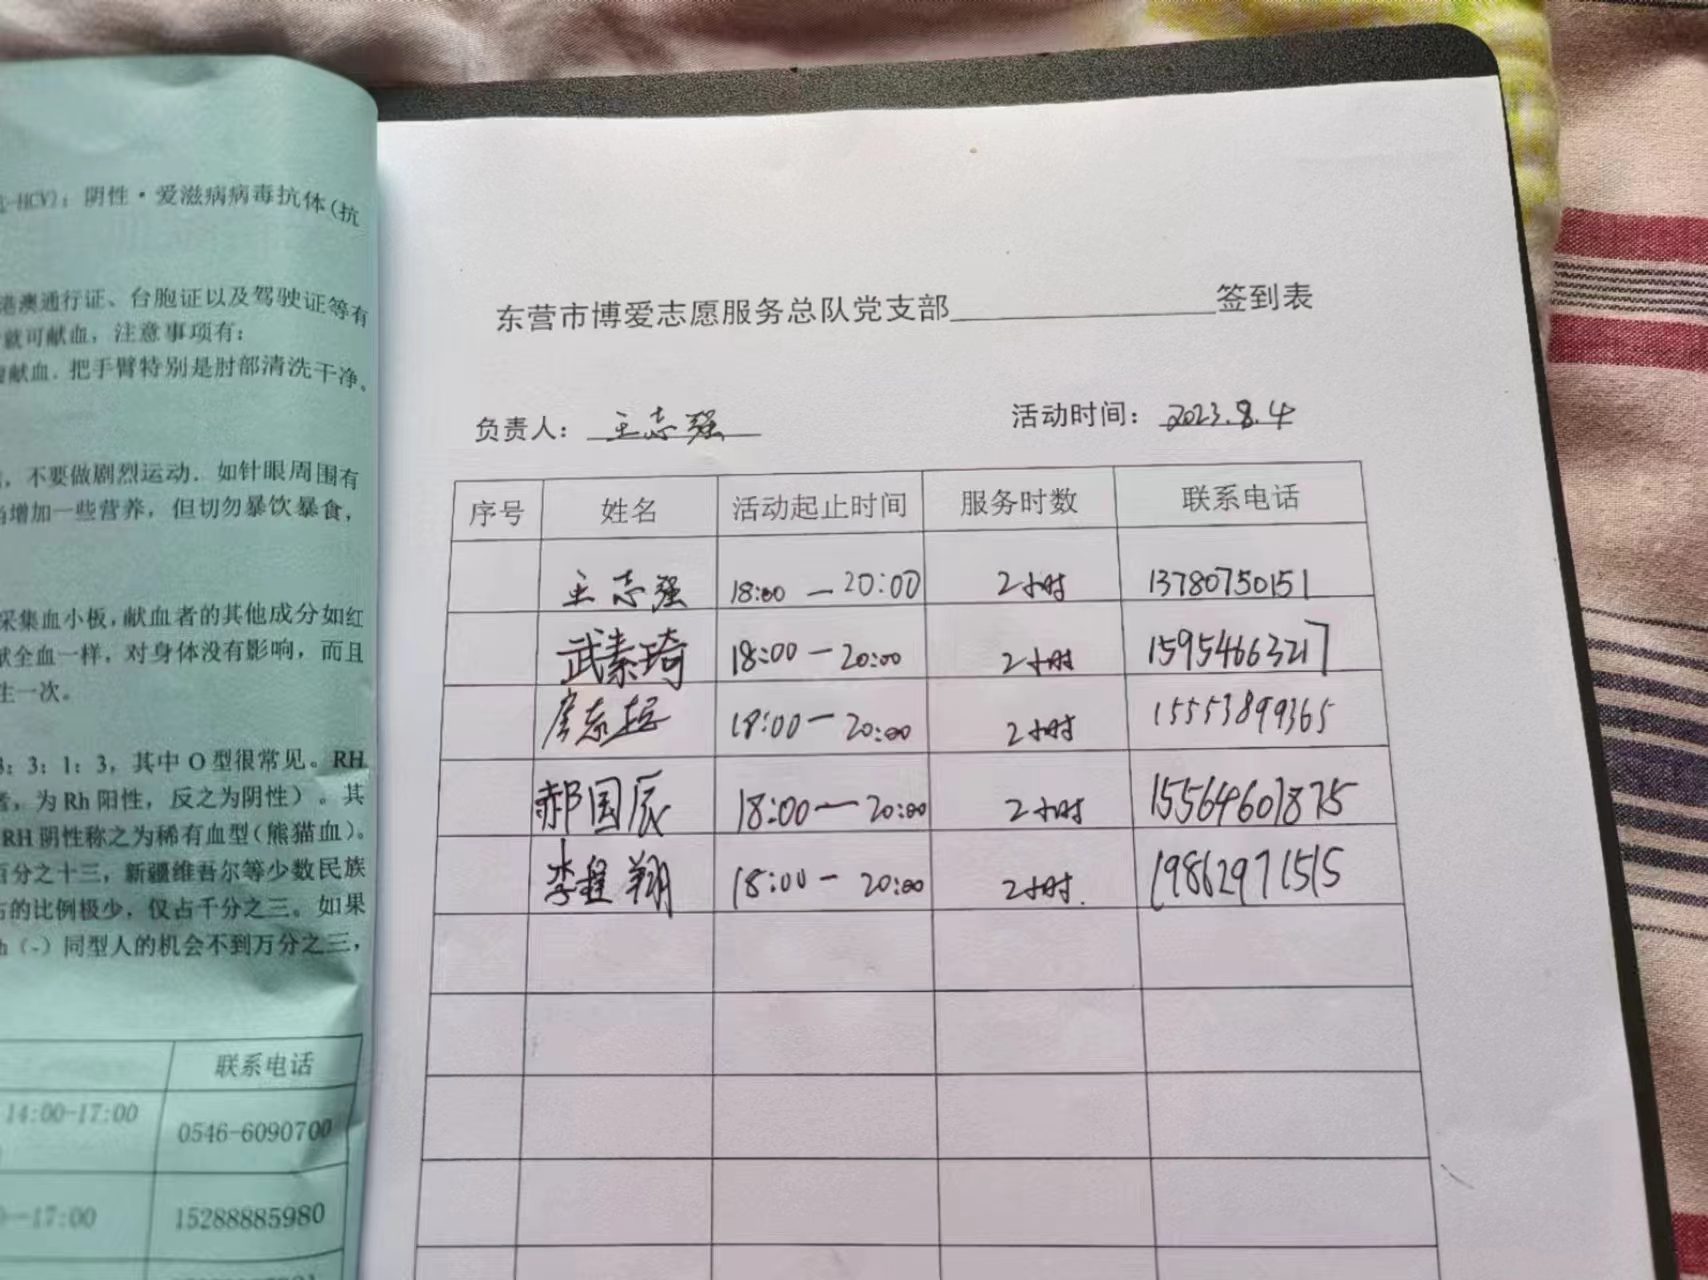 -HCV)：阴性·爱滋病病毒抗体(抗
港澳通行证、台胞证以及驾驶证等有
就可献血，注意事项有：
献血．把手臂特别是肘部清洗干净、
，不要做剧烈运动．如针眼周围有
增加一些营养，但切勿暴饮暴食，
采集血小板，献血者的其他成分如红
献全血一样，对身体没有影响，而且
生一次。
3：3：1：3，其中 O 型很常见。RH
者，为 Rh 阳性，反之为阴性）。其
RH 阴性称之为稀有血型(熊猫血)。
百分之十三，新疆维吾尔等少数民族
占的比例极少，仅占千分之三。如果
h（-）同型人的机会不到万分之三，
联系电话
14:00-17:00 0546-6090700
—17:00 15288885980
东营市博爱志愿服务总队党支部________________签到表
负责人： 王志强 活动时间： 2023.8.4
序号 姓名 活动起止时间 服务时数 联系电话
王志强 18:00 — 20:00 2小时 13780750151
武素琦 18:00 — 20:00 2小时 15954663217
18:00 — 20:00 2小时 15553899365
郝国辰 18:00 — 20:00 2小时 15564601875
李程翔 18:00 — 20:00 2小时. 19862971515